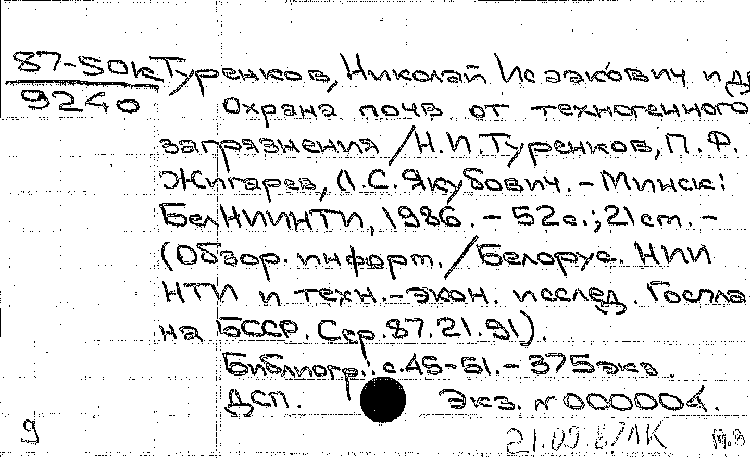 87-50к Туренков, Николай Исаакович и др
9240 Охрана почв от техногенного
загрязнения / Н.И.Туренков, П.Ф.
Жигарев, Л.С.Якубович. - Минск:
БелНИИНТИ, 1986. - 52с.; 21см. -
(Обзор. информ. / Белорус. НИИ
НТИ и техн.-экон. исслед. Госпла
на БССР. Сер. 87.21.91).
Библиогр.: с.45-51. - 375экз.
ДСП. Экз. N 000004.
9